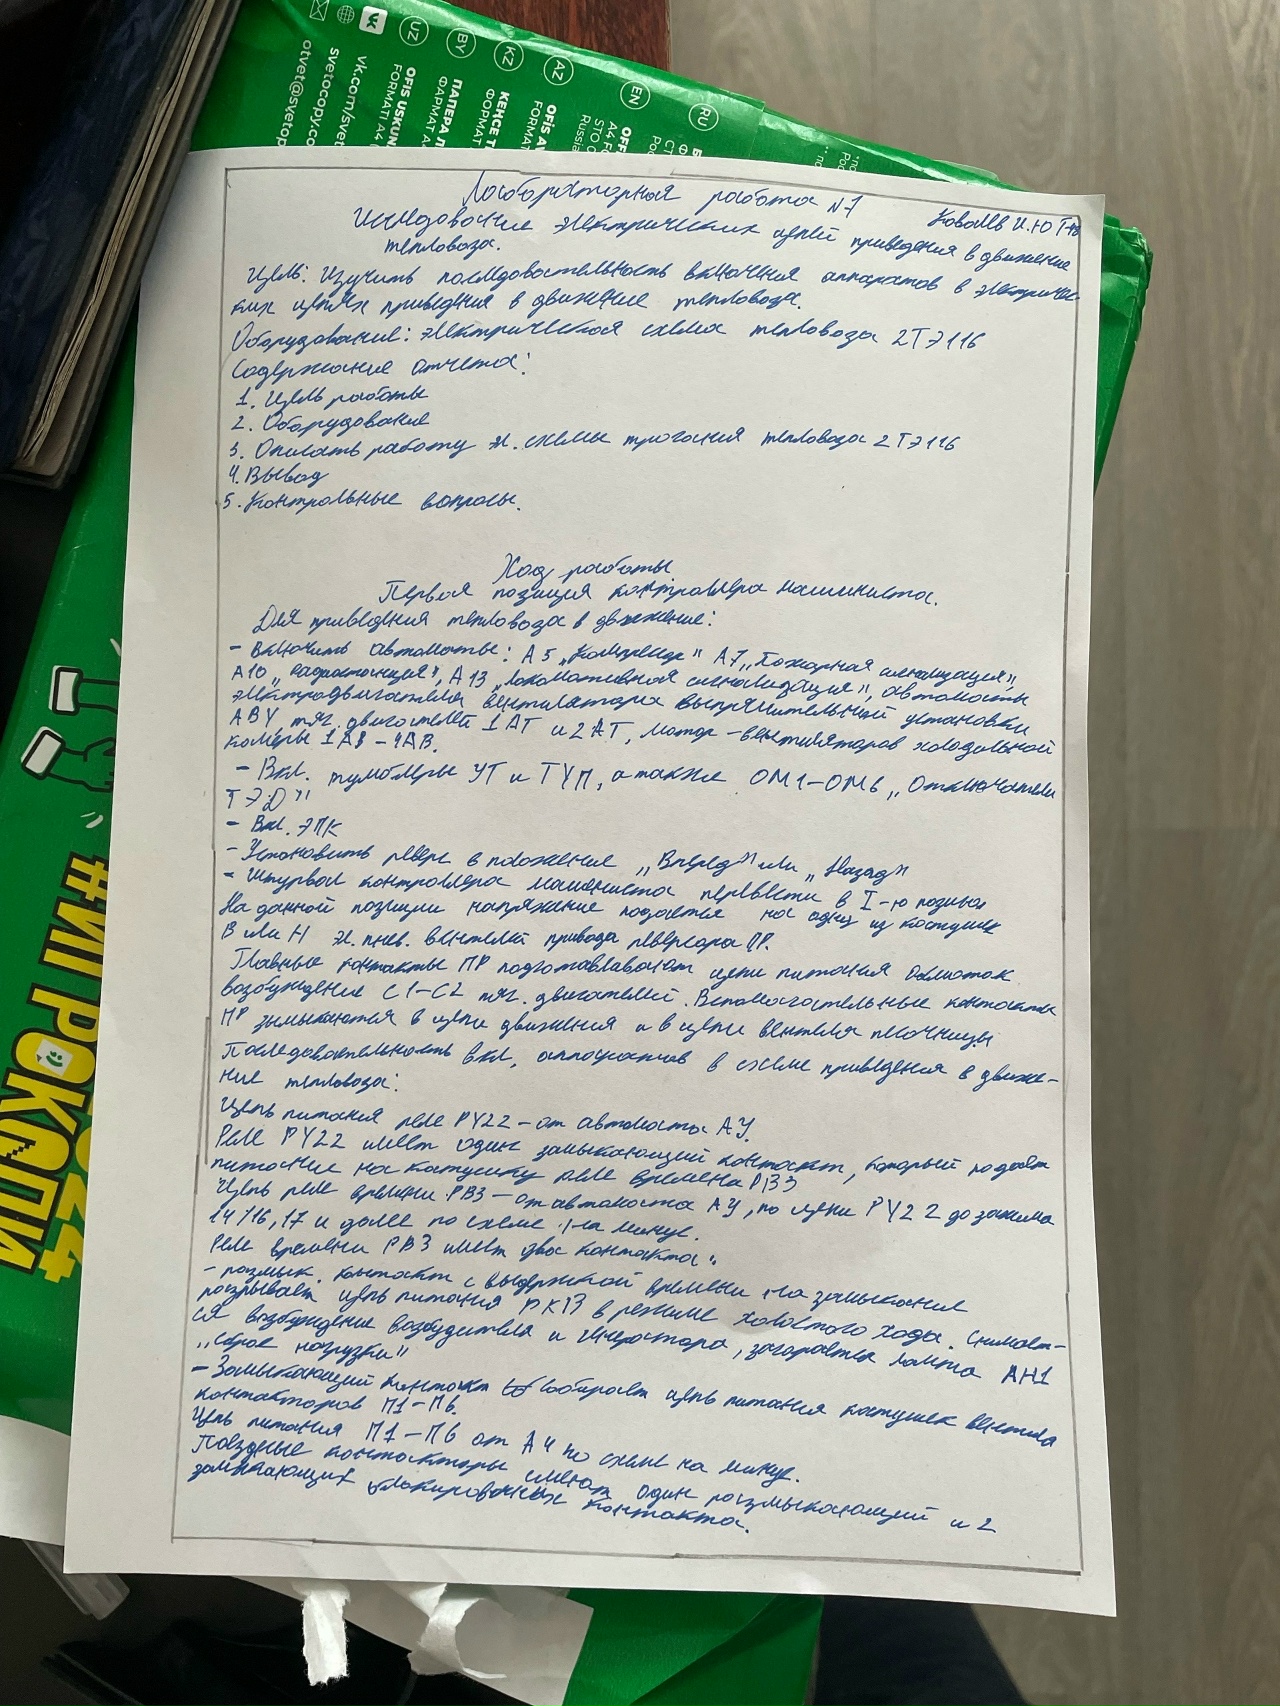 UZ
BY
KZ
AZ
EN
RU
vk.com/svet
svetocopy.co
otvet@svetop
OFIS USKUN
FORMATI A4
ПАПЕРА Л
ФАРМАТ А
КЕҢСЕ Т
ФОРМАТ
OFİS AV
FORMAT
OFF
A4 F
STO
Russia
#ИГРОКОПИ
Лабораторная работа №7
Ковалев И.Ю
Исследование электрических цепей приведения в движение
тепловоза.
Цель: Изучить последовательность включения аппаратов в электричес-
ких цепях приведения в движение тепловоза.
Оборудование: электрическая схема тепловоза 2ТЭ116
Содержание отчета:
1. Цель работы
2. Оборудование
3. Описать работу эл. схемы трогания тепловоза 2ТЭ116
4. Вывод
5. Контрольные вопросы.
Ход работы
Первая позиция контроллера машиниста.
Для приведения тепловоза в движение:
- Включить автоматы: А5 „Компрессор" А7 „Пожарная сигнализация",
А10 „радиостанция", А13 „локомотивная сигнализация", автоматы
электродвигателя вентилятора выпрямительной установки
АВУ, тяг. двигателей 1АТ и 2АТ, мотор-вентиляторов холодильной
камеры 1АВ-4АВ.
- Вкл. тумблеры УТ и ТУП, а также ОМ1-ОМ6 „Отключатели
ТЭД"
- Вкл. ЭПК
- Установить реверс в положение „Вперед" или „Назад"
- Штурвал контроллера машиниста перевести в I-ю позицию
На данной позиции напряжение подается на одну из катушек
В или Н эл. пнев. вентилей привода реверсора ПР.
Главные контакты ПР подготавливают цепи питания обмоток
возбуждения С1-С2 тяг. двигателей. Вспомогательные контакты
ПР замыкаются в цепи движения и в цепи вентиля песочницы
Последовательность вкл. аппаратов в схеме приведения в движе-
ние тепловоза:
Цепь питания реле РУ22 - от автомата АУ.
Реле РУ22 имеет один замыкающий контакт, который подает
питание на катушку реле времени РВ3
Цепь реле времени РВ3 - от автомата АУ, по цепи РУ22 до зажима
14/16,17 и далее по схеме на минус.
Реле времени РВ3 имеет два контакта:
- размык. контакт с выдержкой времени на замыкание
разрывает цепь питания РКВ в режиме холостого хода. Снимает-
ся возбуждение возбудителя и генератора, загорается лампа ЛН1
„сброс нагрузки"
- Замыкающий контакт собирает цепь питания катушек вентиля
контакторов П1-П6.
Цепь питания П1-П6 от А4 по схеме на минус.
Поездные контакторы имеют один размыкающий и 2
замыкающих блокировочных контакта.